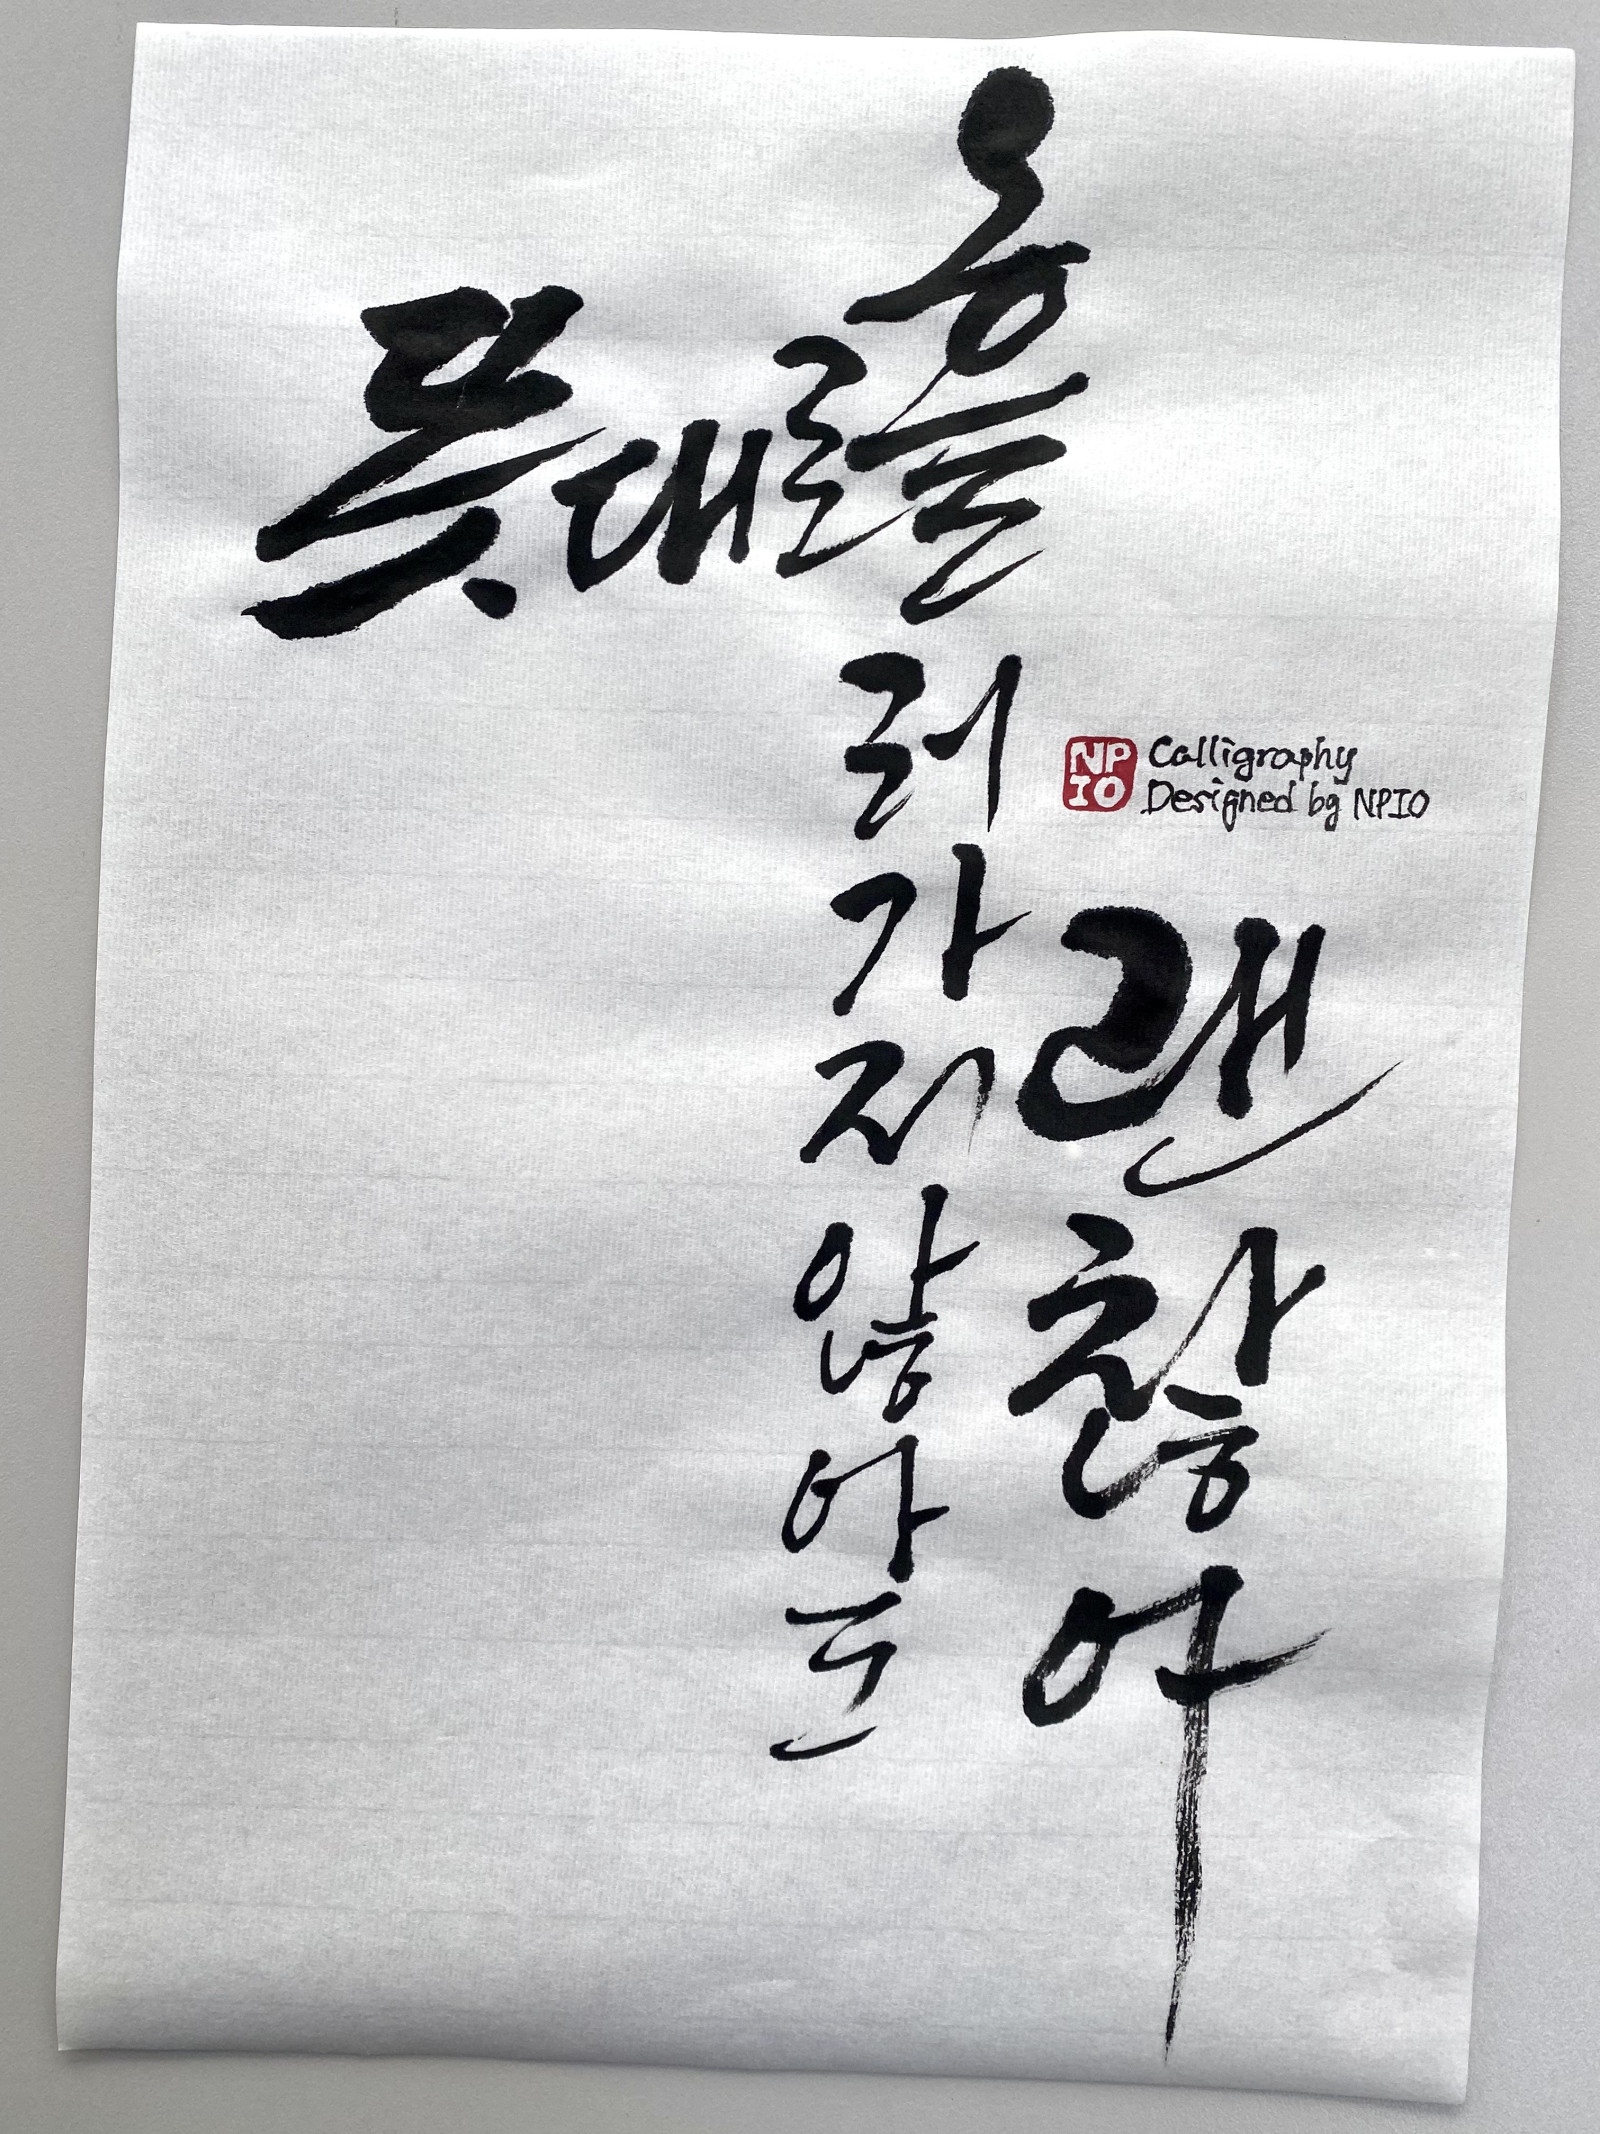 뜻대로
흘러가지 않아도
괜찮아
NP
IO
Calligraphy
Designed by NPIO